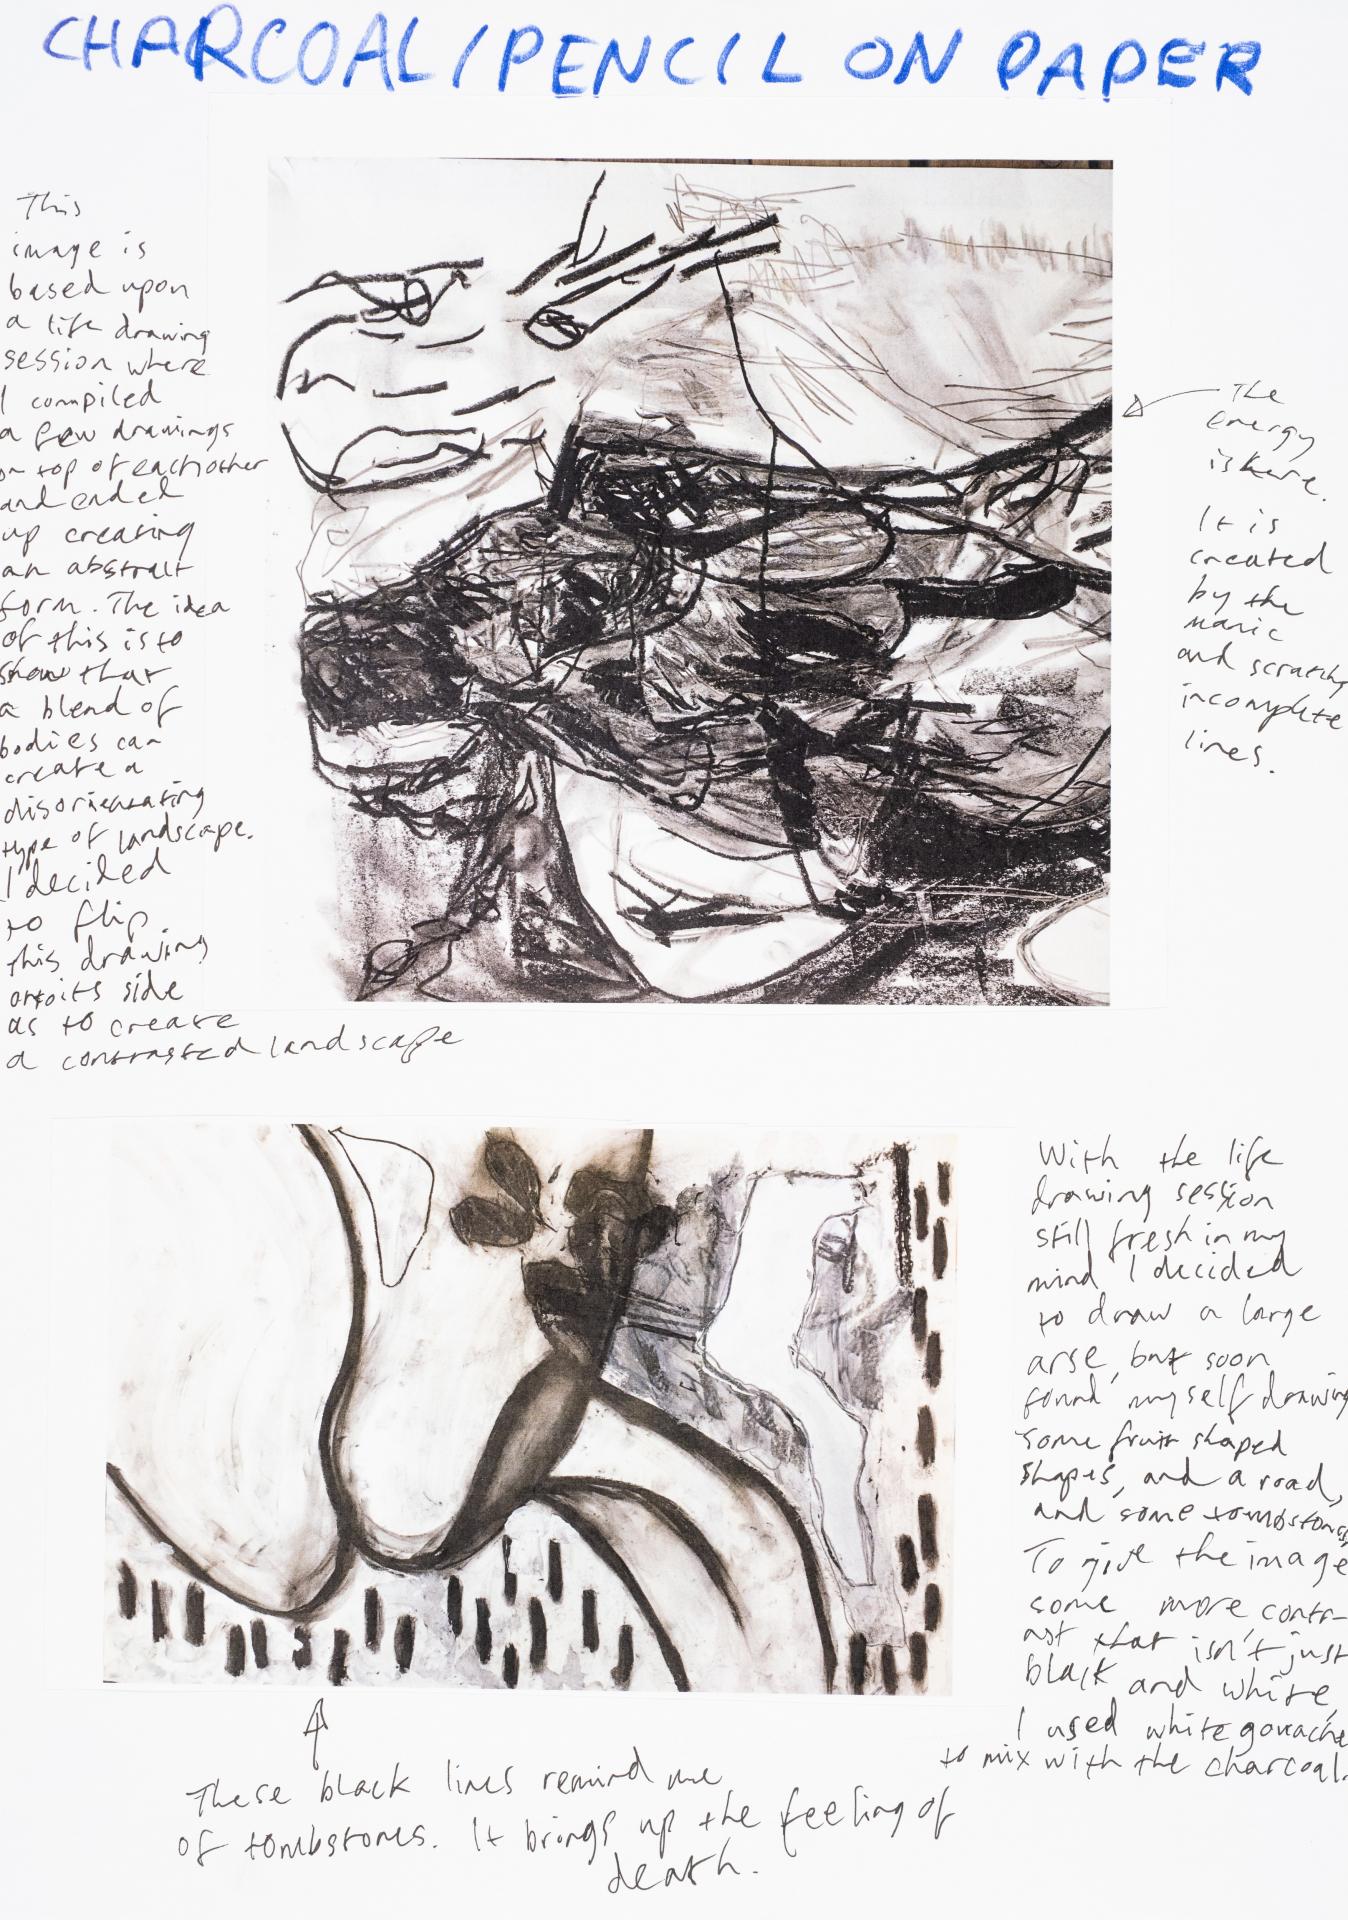 CHARCOAL/PENCIL ON PAPER
This
image is
based upon
a life drawing
session where
I compiled
a few drawings
on top of each other
and ended
up creating
an abstract
form. The idea
of this is to
show that
a blend of
bodies can
create a
disorientating
type of landscape.
I decided
to flip
this drawing
onto its side
as to create
a contrasted landscape
The
energy
is here.
It is
created
by the
manic
and scratchy
incomplete
lines.
With the life
drawing session
still fresh in my
mind I decided
to draw a large
arse, but soon
found myself drawing
some fruit shaped
shapes, and a road,
and some tombstones,
To give the image
some more contr-
ast that isn't just
black and white,
I used white gouache
to mix with the charcoal.
These black lines remind me
of tombstones. It brings up the feeling of
death.